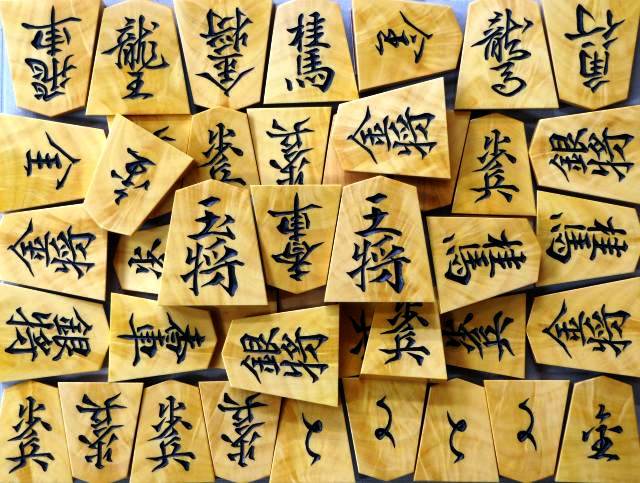 飛車
龍王
金将
桂馬
龍馬
角行
歩兵
歩兵
金将
歩兵
銀将
金将
歩
玉将
香車
王将
桂馬
桂馬
銀将
香車
銀将
歩兵
歩兵
金将
歩兵
歩兵
歩兵
歩兵
と
と
と
と